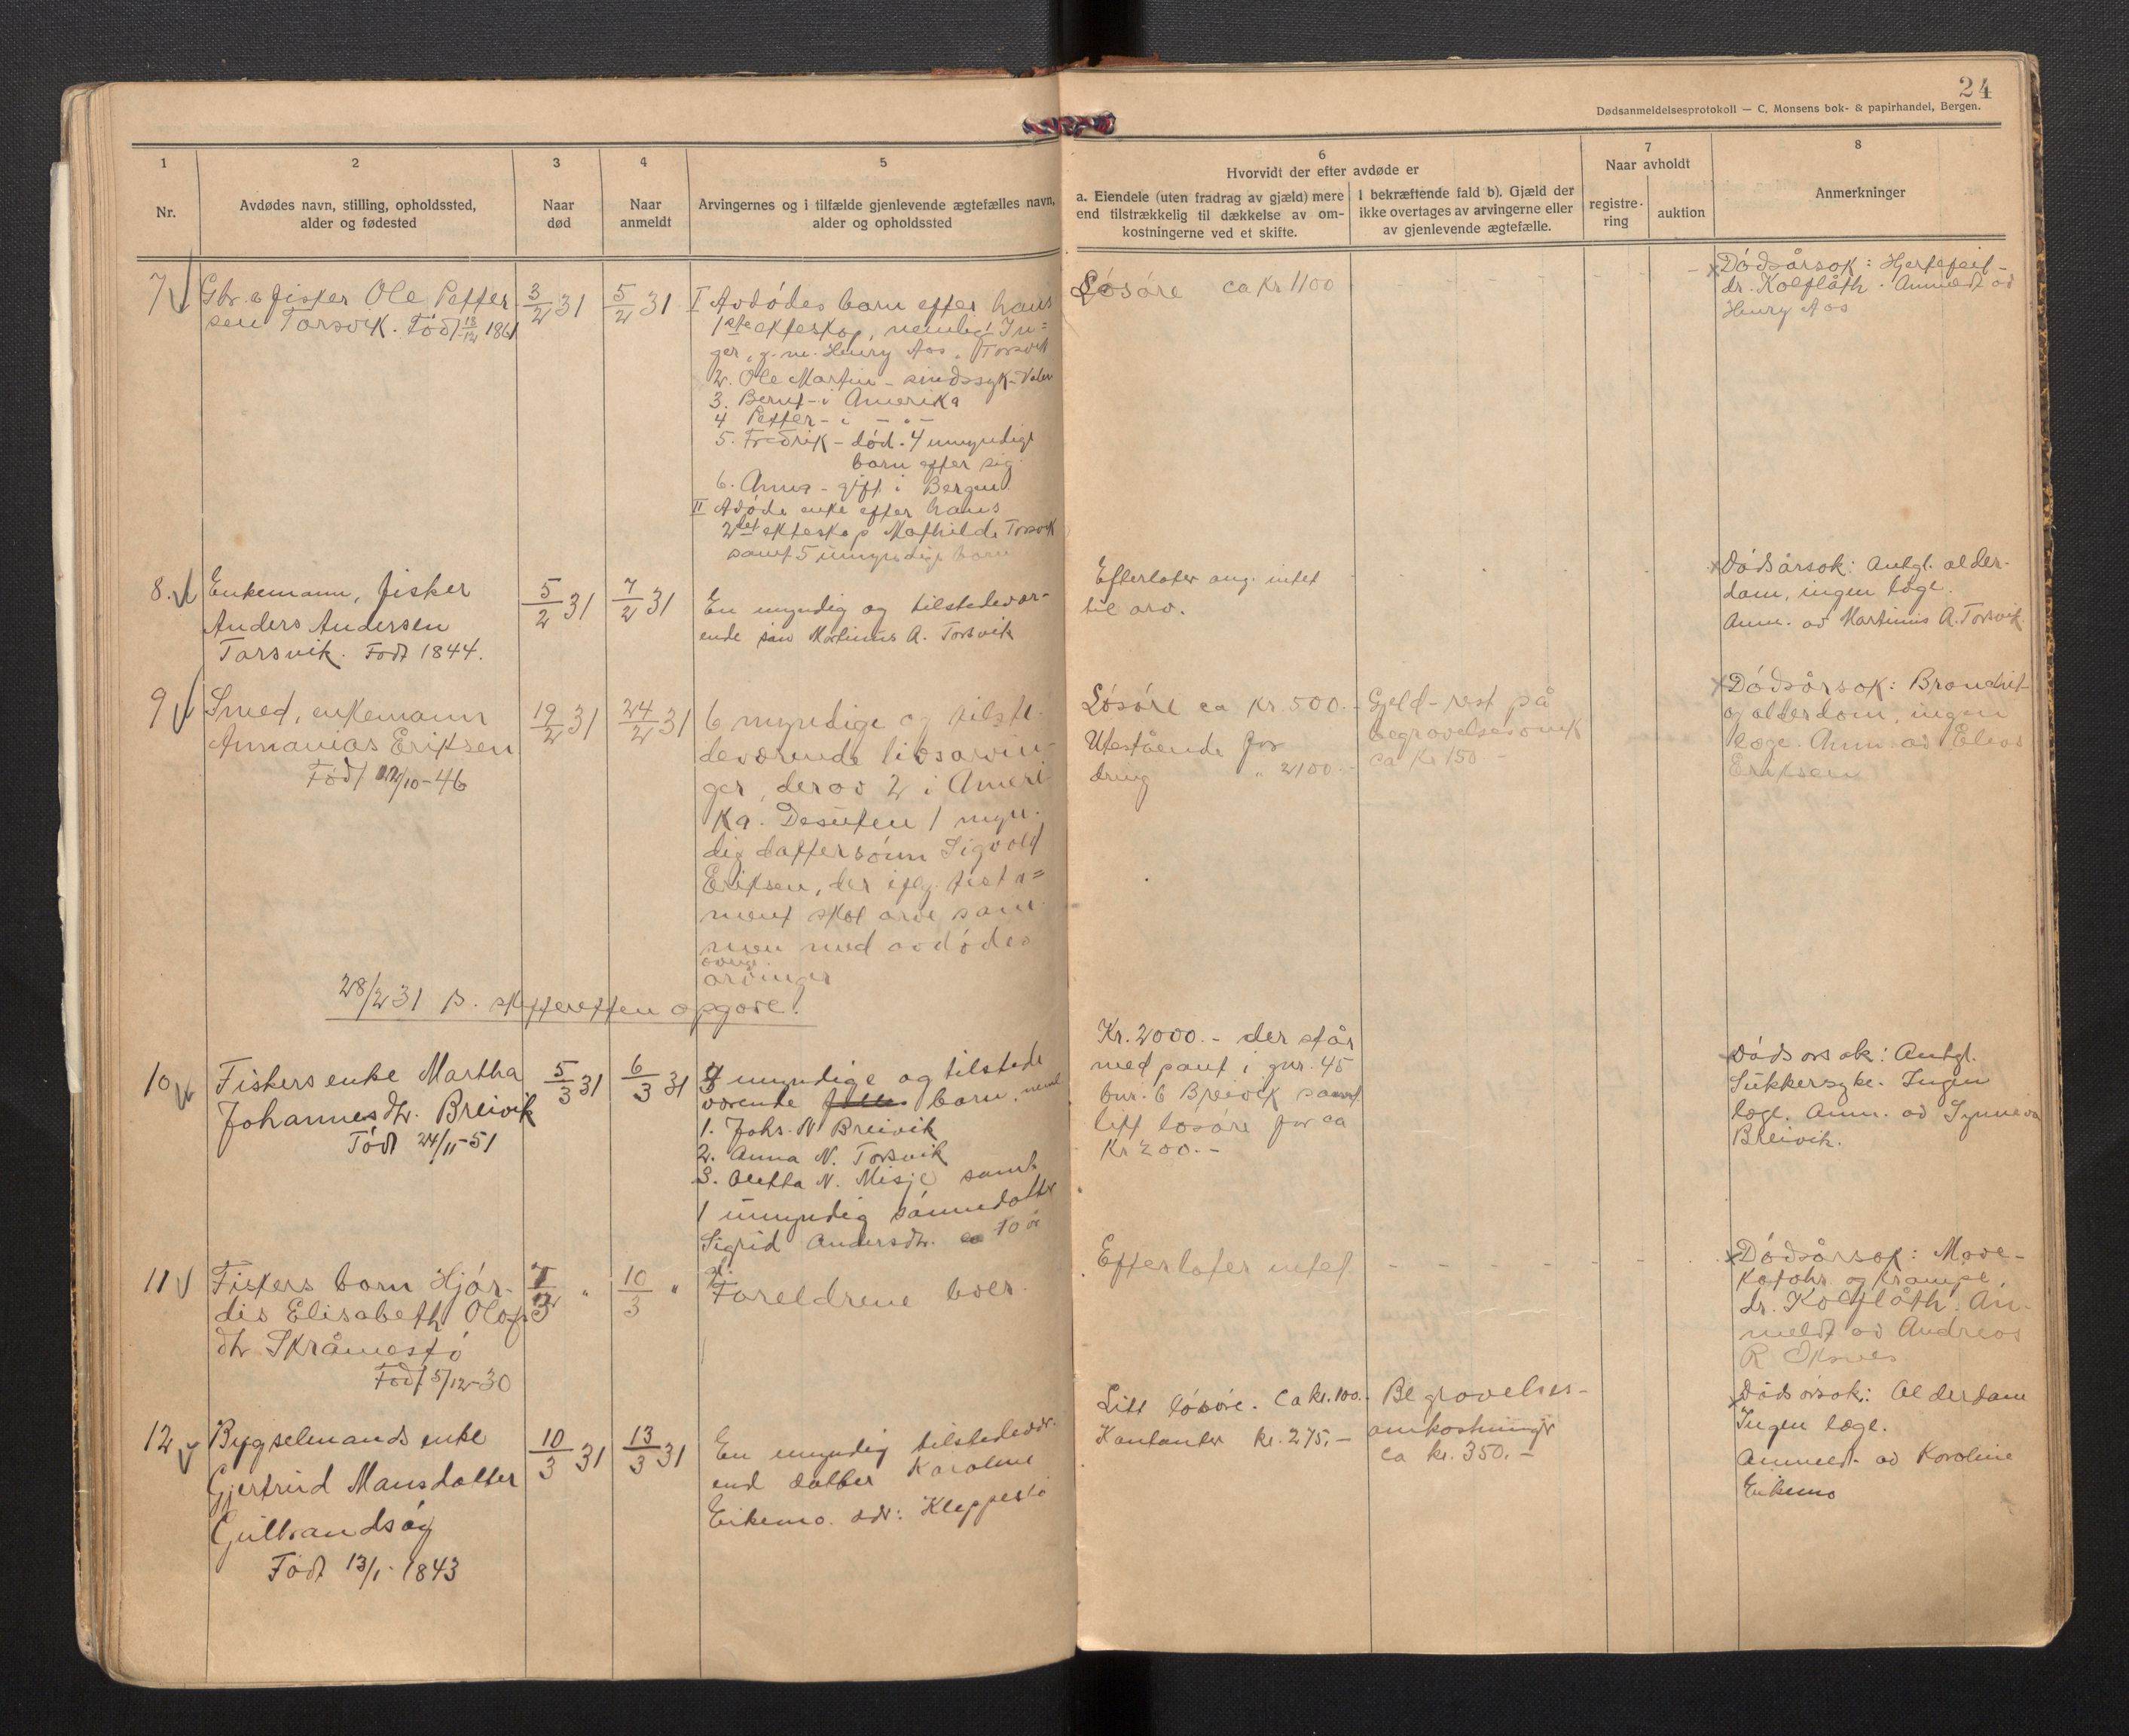 24
Dødsanmeldelsesprotokoll — C. Monsens bok- & papirhandel, Bergen.
1
Nr.
2
Avdødes navn, stilling, opholdssted,
alder og fødested
3
Naar
død
4
Naar
anmeldt
5
Arvingernes og i tilfælde gjenlevende ægtefælles navn,
alder og opholdssted
6
Hvorvidt der efter avdøde er
a. Eiendele (uten fradrag av gjæld) mere
end tilstrækkelig til dækkelse av om-
kostningerne ved et skifte.
I bekræftende fald b). Gjæld der
ikke overtages av arvingerne eller
av gjenlevende ægtefælle.
7
Naar avholdt
registre-
ring
auktion
8
Anmerkninger
7
Gbr. & fisker Ole Petter
sen Torsvik. Født 18/12 1861
3/2 31
5/2 31
I Avdødes barn efter hans
1ste ekteskap, nemlig: In=
ger, g. m. Henry Aos, Torsvik
2. Ole Martin - sindssyk - Valen
3. Bernt - i Amerika
4 Petter - i - " -
5. Fredrik - død. 4 umyndige
barn efter sig.
6. Anna - gift i Bergen.
II Avdøde enke efter hans
2det ekteskap Mathilde Torsvik
samt 5 umyndige barn
Løsøre ca kr 1100
Dødsårsok: Hjertefeil -
dr. Kolflåth. Anmeldt od
Henry Aos
8.
Enkemann, fisker
Anders Andersen
Torsvik. Født 1844.
5/2 31
7/2 31
En myndig og tilstedevær-
ende søn Martinus A. Torsvik
Efterlater ang. intet
til arv.
Dødsårsok: Antgl. alder-
dom, ingen læge.
Anm. av Martinus A. Torsvik.
9
Smed, enkemann
Annanias Eriksen
Født 22/10-46
19/2 31
24/2 31
6 myndige og tilste-
deværende livsarvin-
ger, derav 2 i Ameri
ka. Desuten 1 myn-
dig dattersønn Sigvald
Eriksen, der iflg. testa=
ment skal arve sam-
men med avdødes
øvrige
arvinger
Løsøre ca kr. 500.-
Utestående for
dring " 2100.-
Gjeld - rest på
begravelsesomk
ca kr 150.-
Dødsårsok: Bronchit
og alderdom, ingen
læge. Anm. av Elias
Eriksen
28/2 31 p. skifteretten opgøre!
10
Fiskers enke Martha
Johannesdtr. Breivik
Født 24/11-51
5/3 31
6/3 31
3 myndige og tilstede
værende barn, neml
1. Johs. N Breivik
2. Anna N. Torsvik
3. Oletta N. Misje samt
1 umyndig sønnedatter
Sigrid Andersdtr. 10 år
Kr. 2000.- der står
med pant i gnr. 45
bnr. 6 Breivik samt
litt løsøre for ca
Kr 200.-
Dødsorsak: Antgl.
Sukkersyke. Ingen
læge. Anm. av Synneva
Breivik.
11
Fiskers barn Hjør-
dis Elisabeth Olafs
dtr Skråmestø
Født 5/12-30
7/3 "
10/3 "
Foreldrene lever.
Efterlater intet
Dødsårsok: Mave-
katahr. og Krampe,
dr. Kolflåth. An-
meldt av Andreas
R
12
Bygselmands enke
Gjertrud Mansdatter
Gullbrandsøy
Født 13/1- 1843
10/3 31
13/3 31
En myndig tilstedevær-
end datter Karoline
Eikemo. adr: Kleppestø
Litt løsøre. Ca kr. 100.-
Kontanter kr. 275,-
Begravelses-
omkostninger
ca kr. 350.-
Dødsorsak: Alderdom
Ingen læge.
Anmeldt av Koroline
Eikemo